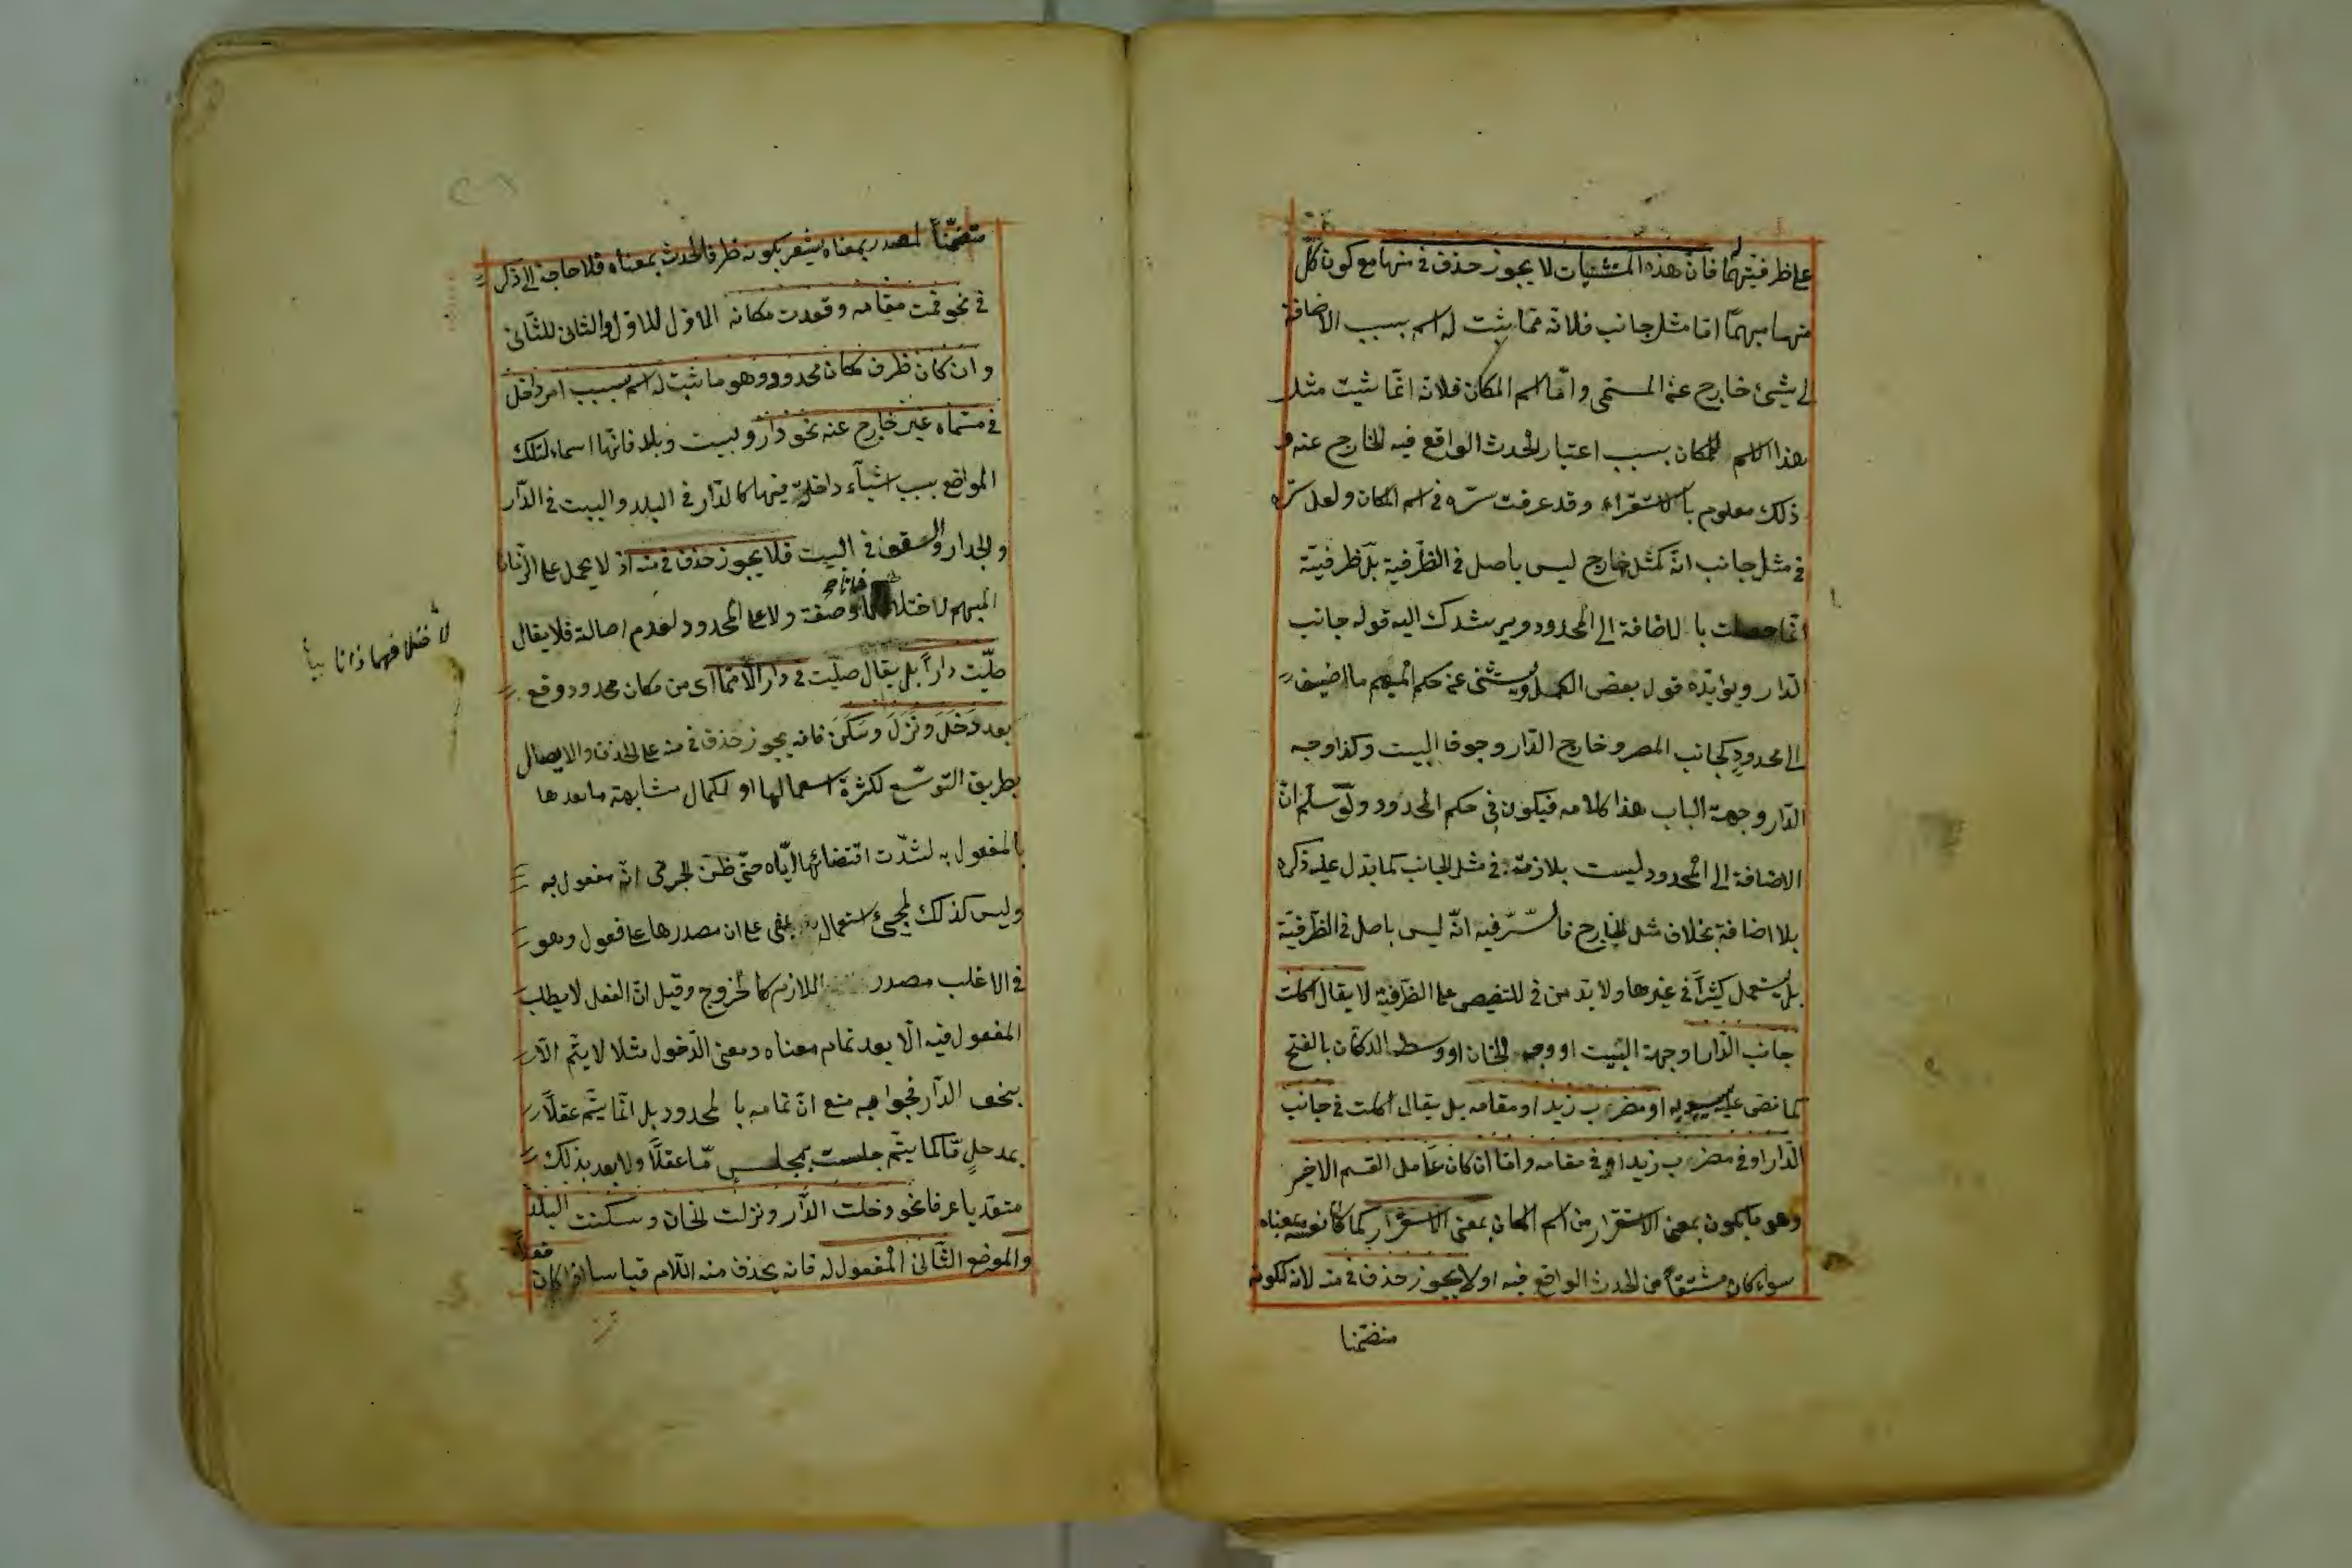 على ظرفيتهما فان هذه المستثنيات لا يجوز حذف في منها مع كون كل
منها مبهما اما مثل جانب فلانه مما يثبت له اسم بسبب الاضافة
الى شيئ خارج عن المسمى واما اسم المكان فلانه انما يثبت مثل
هذا الاسم للمكان بسبب اعتبار الحدث الواقع فيه الخارج عنه و
ذلك معلوم بالاستقراء وقد عرفت سره في اسم المكان ولعل سره
في مثل جانب انه كمثل خارج ليس باصل في الظرفية بل ظرفيته
انما حصلت بالاضافة الى المحدود ويرشدك اليه قوله جانب
الدار ويؤيده قول بعض الكمل ويستثنى عن حكم المبهم ما اضيف
الى محدود كجانب المصر وخارج الدار وجوف البيت وكذا وجه
الدار وجهة الباب هذا كلامه فيكون في حكم المحدود ولو سلم ان
الاضافة الى المحدود ليست بلازمة في مثل الجانب كما يدل عليه ذكره
بلا اضافة بخلاف مثل الخارج فالسر فيه انه ليس باصل في الظرفية
بل يستعمل كثيرا في غيرها ولا بد من في للتنصيص على الظرفية لا يقال اكلت
جانب الدار او جهة البيت او وجه الخان او وسط الدكان بالفتح
كما نص عليه سيبويه او مضرب زيد او مقامه بل يقال اكلت في جانب
الدار او في مضرب زيد او في مقامه واما ان كان عامل القسم الاخير
وهو ما يكون بمعنى الاستقرار من اسم المكان بمعنى الاستقرار كما كان هو بمعناه
سواء كان مشتقا من الحدث الواقع فيه او لا يجوز حذف في منه لانه لكونه
متضمنا
متضمنا لمصدر بمعناه يشعر بكونه ظرفا لحدث بمعناه فلا حاجة الى ذكر
في نحو قمت مقامه وقعدت مكانه الاول للاول والثاني للثاني
وان كان ظرف مكان محدود وهو ما يثبت له اسم بسبب امر داخل
في مسماه غير خارج عنه نحو دار وبيت وبلد فانها اسماء لتلك
المواضع بسبب اشياء داخلة فيها كالدار في البلد والبيت في الدار
والجدار والسقف في البيت فلا يجوز حذف في منه اذ لا يحمل على الزمان
المبهم لاختلافهما ذاتا وصفة ولا على المحدود لعدم اصالته فلا يقال
صليت دارا بل يقال صليت في دار الا مما اى من مكان محدود وقع
بعد دَخَلَ ونَزَلَ وسَكَنَ فانه يجوز حذف في منه على الحذف والايصال
بطريق التوسع لكثرة استعمالها او لكمال مشابهة ما بعدها
بالمفعول به لشدت اقتضائها اياه حتى ظن الجرمي انه مفعول به
وليس كذلك لمجيئ استعماله بفى على ان مصدرها على فعول وهو
في الاغلب مصدر اللازم كالخروج وقيل ان الفعل لا يطلب
المفعول فيه الا بعد تمام معناه ومعنى الدخول مثلا لا يتم الا
بنحو الدار فجوابه منع ان تمامه بالمحدود بل انما يتم عقلا
بمدخلٍ ما كما يتم جلست بمجلس ما عقلا ولا يعد بذلك
متعديا عرفا نحو دخلت الدار ونزلت الخان وسكنت البلد
والموضع الثاني المفعول له فانه يحذف منه اللام قياسا اذا كان
فعلا